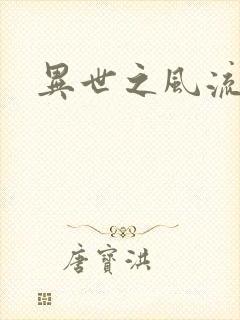 異世之風流
唐寶洪